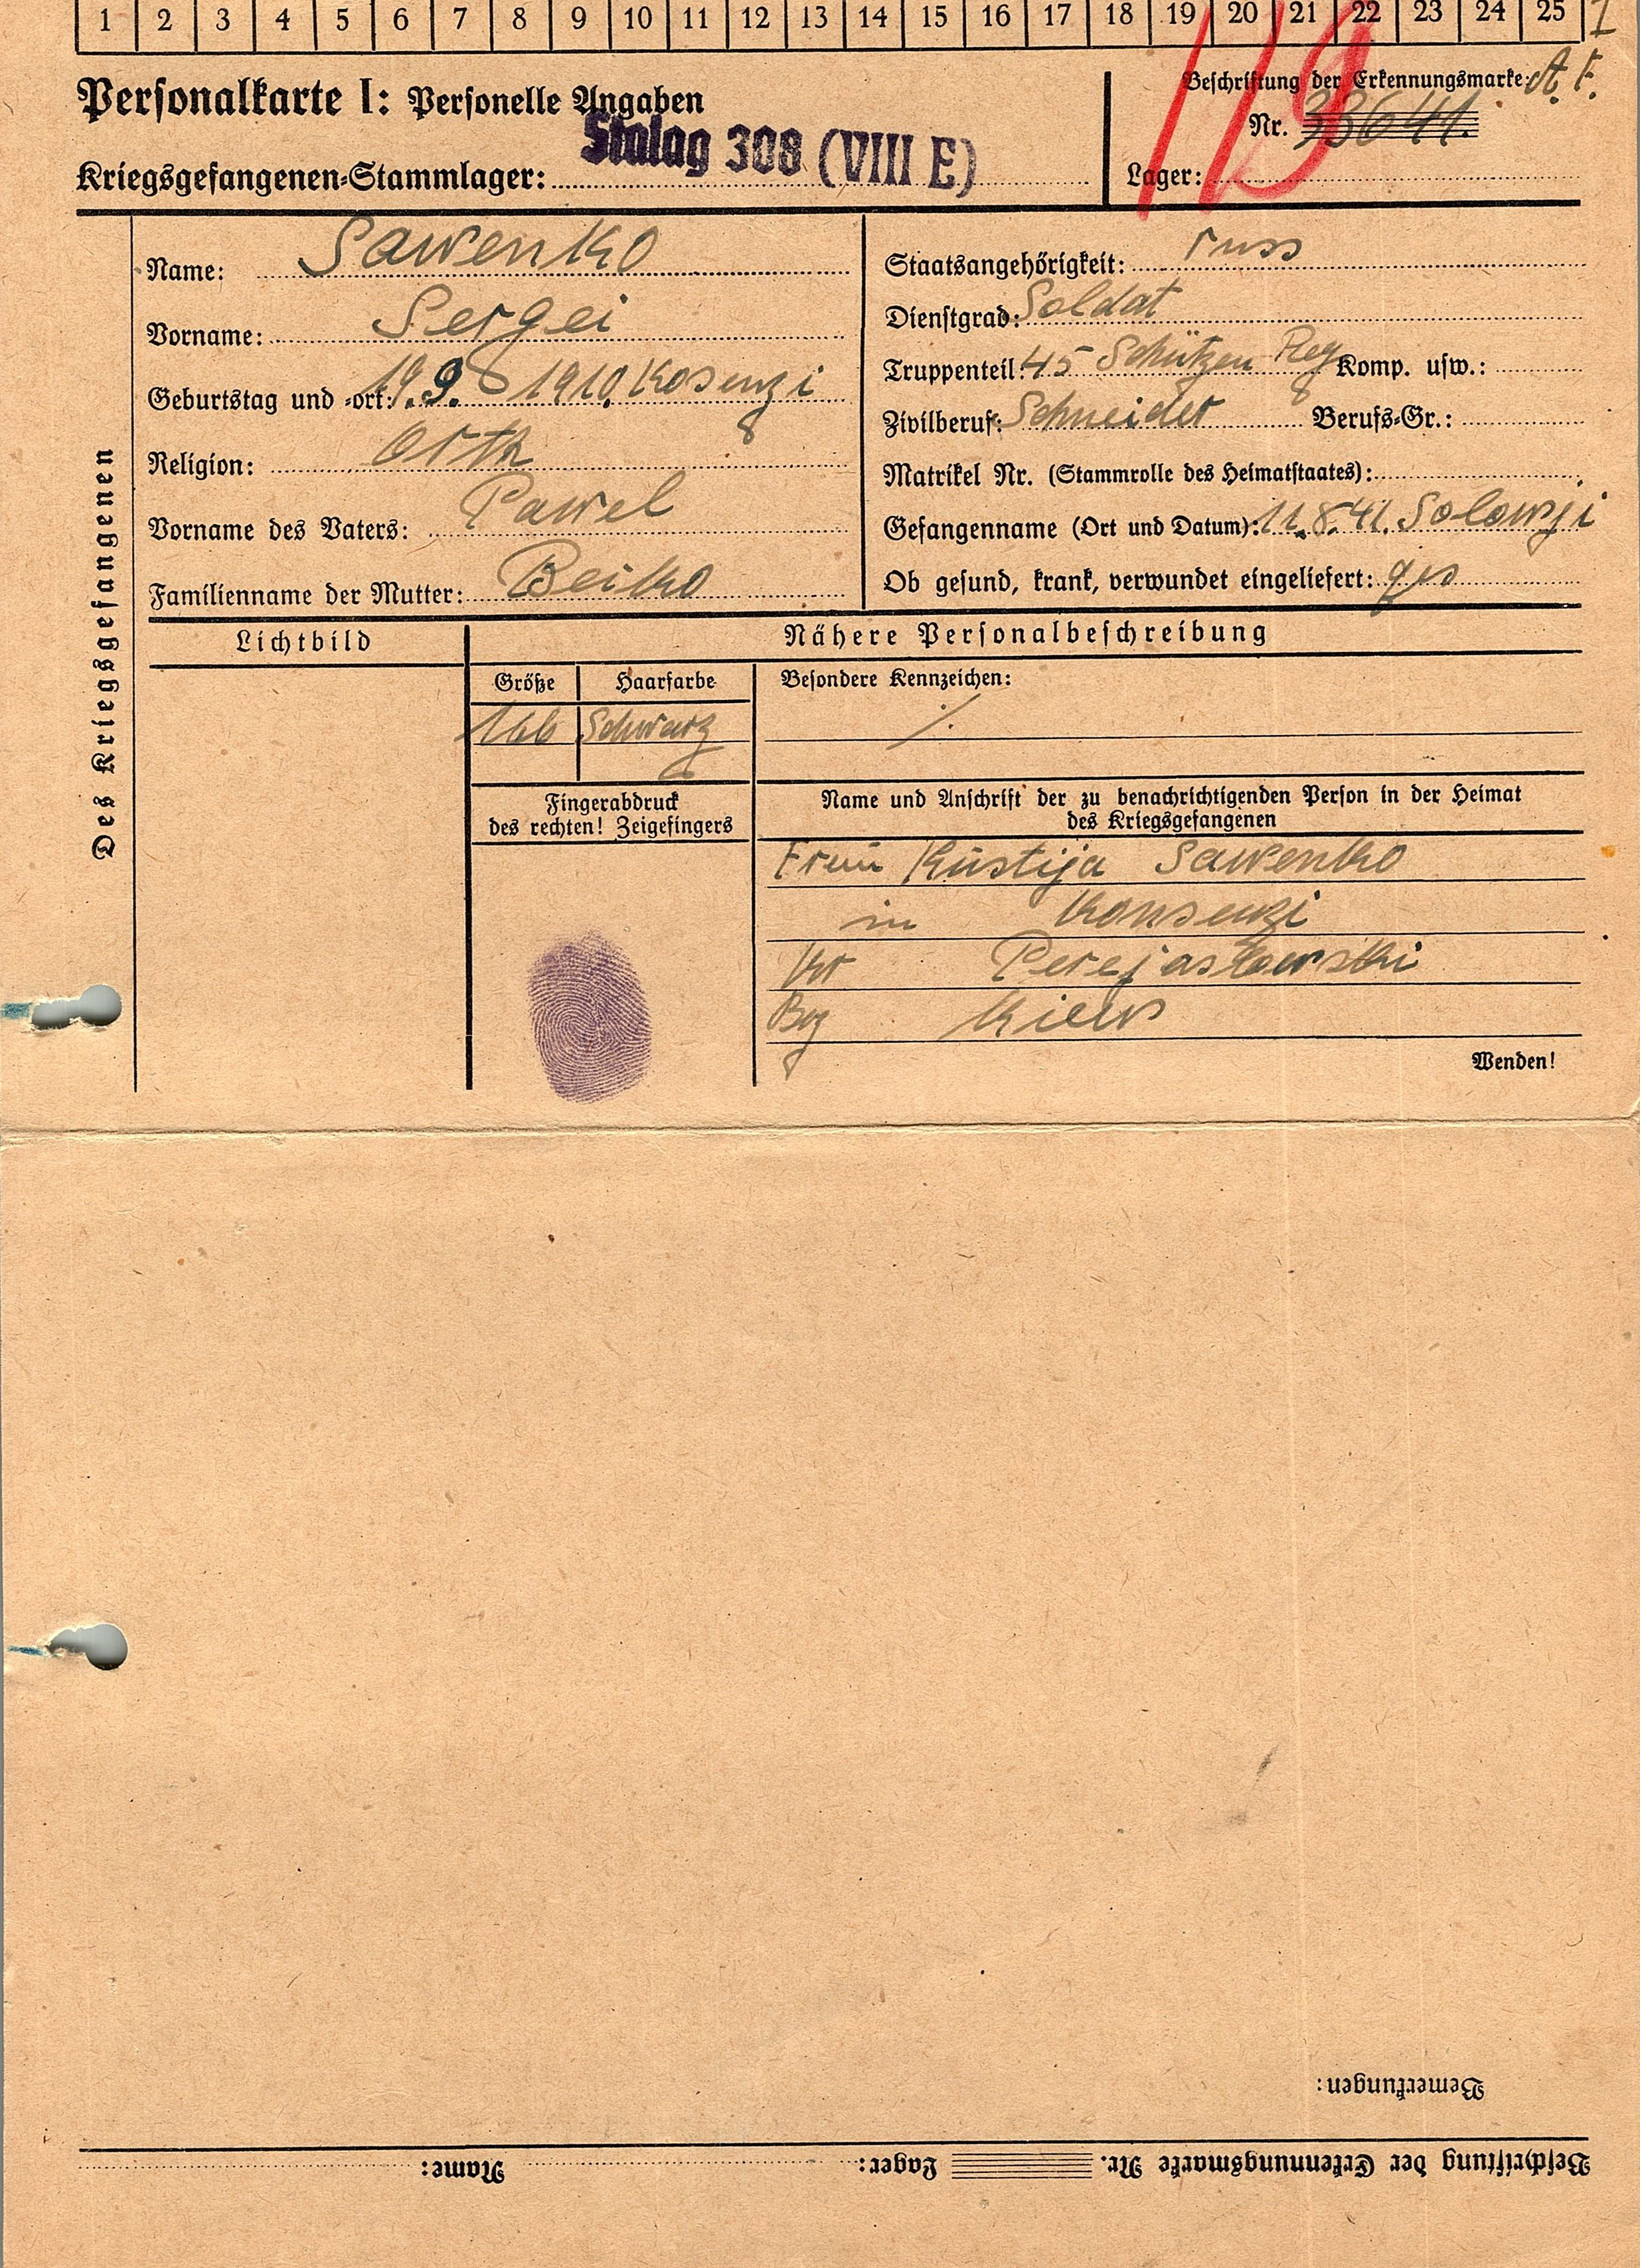 1 2 3 4 5 6 7 8 9 10 11 12 13 14 15 16 17 18 19 20 21 22 23 24 25 I
119
Personalkarte I: Personelle Angaben
Beschriftung der Erkennungsmarke: A. F.
Nr. 33641.
Kriegsgefangenen-Stammlager: Stalag 308 (VIII E)
Lager:
Des Kriegsgefangenen
Name: Sawenko
Vorname: Sergei
Geburtstag und -ort: 19.9. 1910. Kosenzi
Religion: Orth
Vorname des Vaters: Pawel
Familienname der Mutter: Beiko
Staatsangehörigkeit: russ
Dienstgrad: Soldat
Truppenteil: 45 Schützen Reg Komp. usw.:
Zivilberuf: Schneider Berufs-Gr.:
Matrikel Nr. (Stammrolle des Heimatstaates):
Gefangenname (Ort und Datum): 11.8.41. Solowji
Ob gesund, krank, verwundet eingeliefert: ges
Lichtbild
Nähere Personalbeschreibung
Größe Haarfarbe Besondere Kennzeichen:
166 Schwarz ./.
Fingerabdruck
des rechten! Zeigefingers
Name und Anschrift der zu benachrichtigenden Person in der Heimat
des Kriegsgefangenen
Frau Kustija Sawenko
in Konsenzi
Kr Perejaslowski
Bez Kiew
Wenden!
Bemerkungen:
Beschriftung der Erkennungsmarke Nr. Lager: Name: